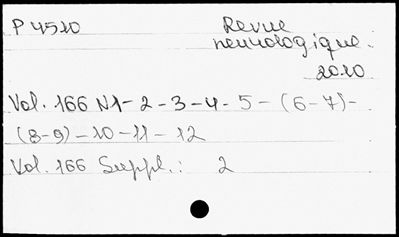 P 4520
Revue
neurologique.
2010
Vol. 166 N1-2-3-4-5-(6-7)-
(8-9)-10-11-12
Vol. 166 Suppl.: 2